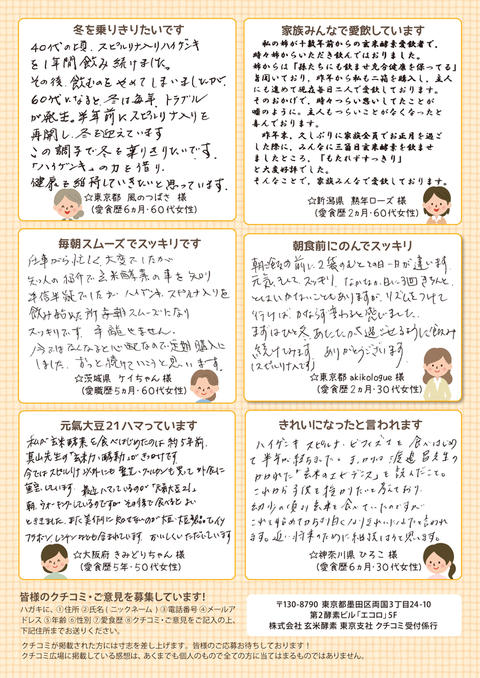 冬を乗りきりたいです
40代の頃、スピルリナ入りハイゲンキ
を1年間飲み続けました。
その後、飲むのをやめてしまいましたが、
60代になると、冬は毎年、トラブル
が発生。半年前にスピルリナ入りを
再開し、冬を迎えています
この調子で冬を乗りきりたいです。
「ハイゲンキ」の力を借り、
健康を維持していきたいと思っています。
☆東京都 風のつばさ 様
(愛食歴6カ月・60代女性)
家族みんなで愛飲しています
私の姉が十数年前からの玄米酵素愛飲者で、
時々姉からいただき飲んではおりました。
姉からは「孫たちにも飲ませ充分健康を保ってる」
を聞いており、昨年から私も二箱を購入し、主人
にも進めて現在毎日二人で愛飲しております。
そのおかげで、時々つらい思いしてたことが
嘘のように。主人もつらいことがなくなったと
喜んでおります。
昨年末、久しぶりに家族全員でお正月を過ご
した際に、みんなに三箇日玄米酵素を飲ませ
ましたところ、「もたれずすっきり」
と大度好評でした。
そんなことで、家族みんなで愛飲しております。
☆新潟県 熟年ローズ 様
(愛食歴2カ月・60代女性)
毎朝スムーズでスッキリです
仕事から忙しく大変でしたが
知人の紹介で玄米酵素の事を知り
半信半疑でしたが、ハイゲンキ、スピルリナ入りを
飲み始めた所毎朝スムーズになり
スッキリです。手離せません。
今ではなくなると心配なので定期購入に
しました。ずっと続けていこうと思います。
☆茨城県 ケイちゃん 様
(愛職歴5カ月・60代女性)
朝食前にのんでスッキリ
朝食の前に、2袋のむとその日一日が違います。
元気に、そして、スッキリ。なかなか、1日に3回きちんと、
とはいかないこともありますが、リズムをつけて
行けば、かならず変わると感じました。
まずはひと冬、あたたかく過ごせるように飲み
続けてみます。ありがとうございます。
(スピルリナ入です)
☆東京都 akikologue 様
(愛食歴2カ月・30代女性)
元氣大豆21ハマっています
私が玄米酵素を食べはじめたのは約5年前、
真山先生の「玄米力・酵動力」がきっかけです
今ではスピルリナ以外にも
☆大阪府 きみどりちゃん 様
(愛食歴5年・50代女性)
きれいになったと言われます
ハイゲンキ スピルリナ・ビフィズスを食べはじめ
て半年が経ちました。きっかけは渡邊昌先生の
かかれた「玄米のエビデンス」を読んだこと。
これから子供を授かりたいと考えており、
☆神奈川県 ひろこ 様
(愛食歴6カ月・30代女性)
皆様のクチコミ・ご意見を募集しています!
ハガキに、①住所 ②氏名(ニックネーム) ③電話番号 ④メールア
ドレス ⑤年齢 ⑥性別 ⑦愛食歴 ⑧クチコミ・ご意見をご記入の上、
下記住所までお送りください。
〒130-8790 東京都墨田区両国3丁目24-10
第2酵素ビル「エコロ」5F
株式会社 玄米酵素 東京支社 クチコミ受付係行
クチコミが掲載された方には寸志を差し上げます。皆様のご応募お待ちしております!
クチコミ広場に掲載している感想は、あくまでも個人のもので全ての方に当てはまるものではありません。